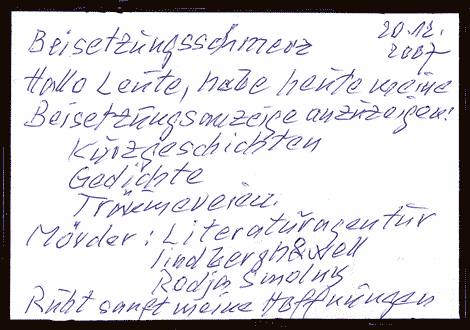 Beisetzungsschmerz
20.12.
2007
Hallo Leute, habe heute meine
Beisetzungsanzeige anzuzeigen:
Kürzgeschichten
Gedichte
Träumereien.
Mörder: Literaturagentur
lindbergh & well
Rodja Smolny
Ruht sanft meine Hoffnungen